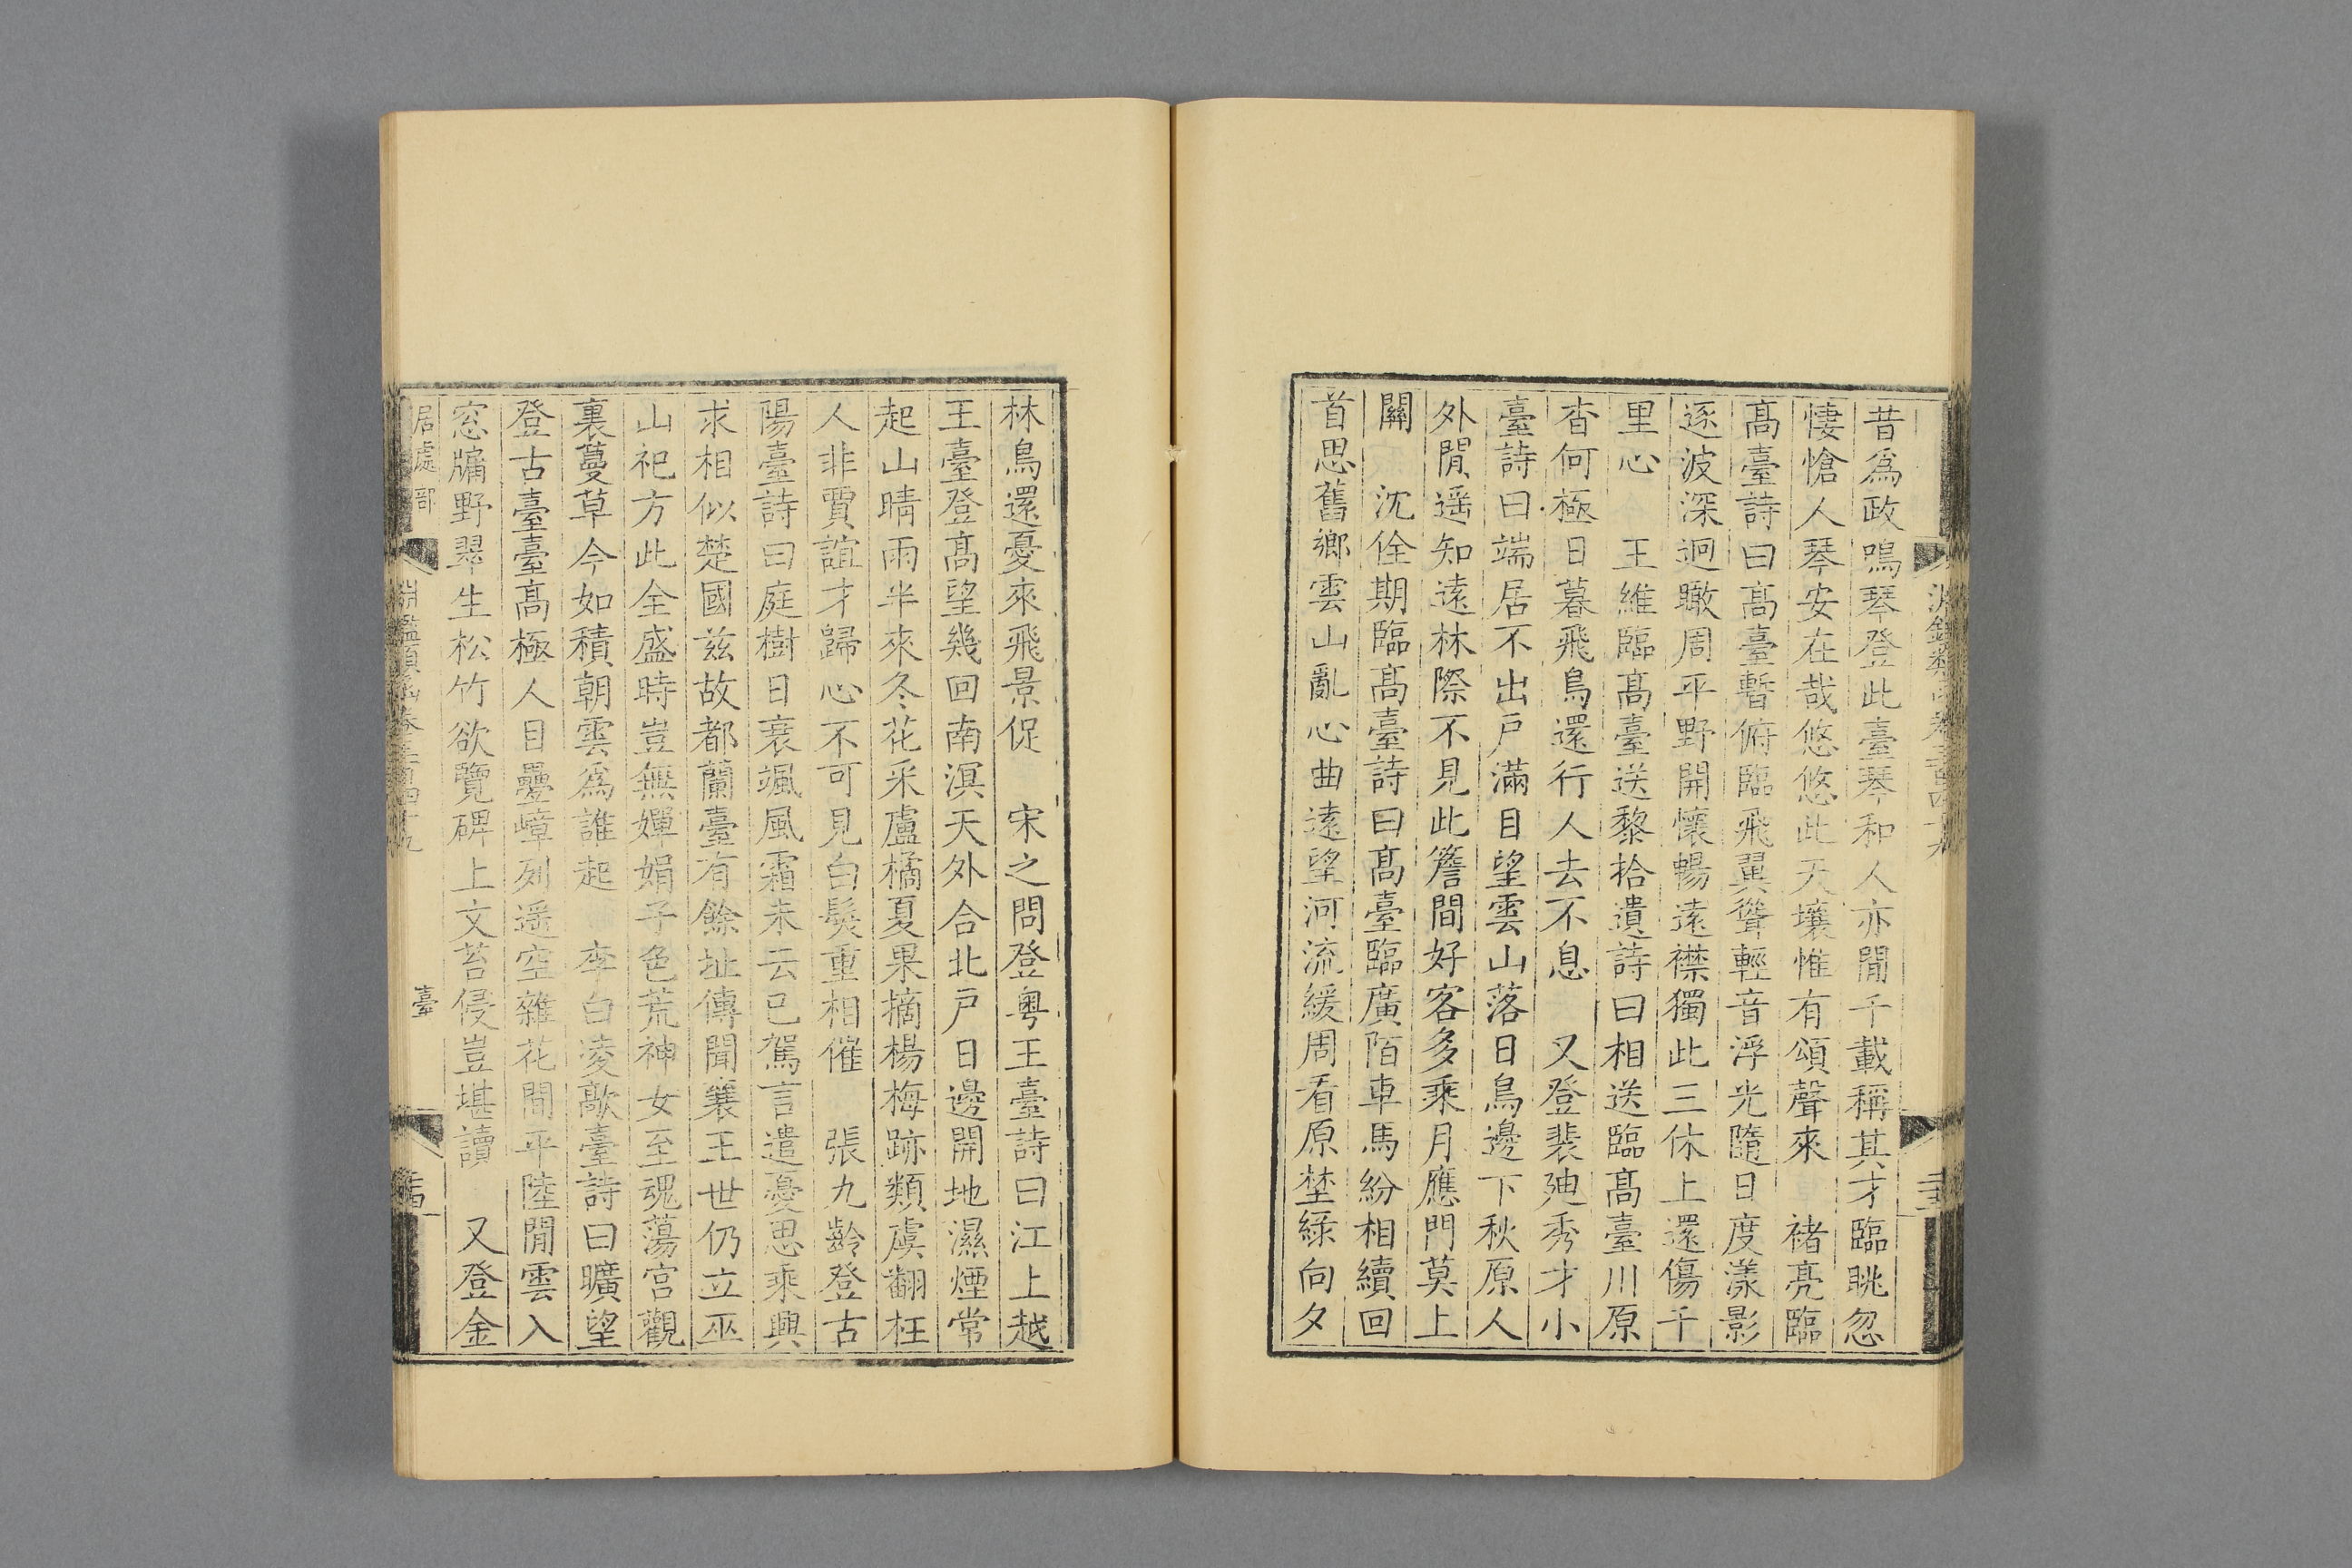 昔爲政鳴琴登此臺琴和人亦閒千載稱其才臨眺忽
悽愴人琴安在哉悠悠此天壤惟有頌聲來　褚亮臨
髙臺詩曰髙臺暫俯臨飛翼聳輕音浮光隨日度漾影
逐波深迥瞰周平野開懷暢遠襟獨此三休上還傷千
里心　王維臨髙臺送黎拾遺詩曰相送臨髙臺川原
杳何極日暮飛鳥還行人去不息　又登裴廸秀才小
臺詩曰端居不出戸滿目望雲山落日鳥邊下秋原人
外閒遥知遠林際不見此簷間好客多乘月應門莫上
關　沈佺期臨髙臺詩曰髙臺臨廣陌車馬紛相續回
首思舊鄉雲山亂心曲遠望河流緩周看原埜綠向夕
林鳥還憂來飛景促　宋之問登粤王臺詩曰江上越
王臺登髙望幾回南溟天外合北戸日邊開地濕煙常
起山晴雨半來冬花采盧橘夏果摘楊梅跡類虞翻枉
人非賈誼才歸心不可見白髮重相催　張九齡登古
陽臺詩曰庭樹日衰颯風霜未云已駕言遣憂思乘興
求相似楚國兹故都蘭臺有餘址傳聞襄王世仍立巫
山祀方此全盛時豈無嬋娟子色荒神女至魂蕩宫觀
裏蔓草今如積朝雲爲誰起　李白凌歊臺詩曰曠望
登古臺臺髙極人目疊嶂列遥空雜花間平陸閒雲入
窓牖野翠生松竹欲覽碑上文苔侵豈堪讀　又登金
居處部
淵鑑類函卷三百四十九
臺